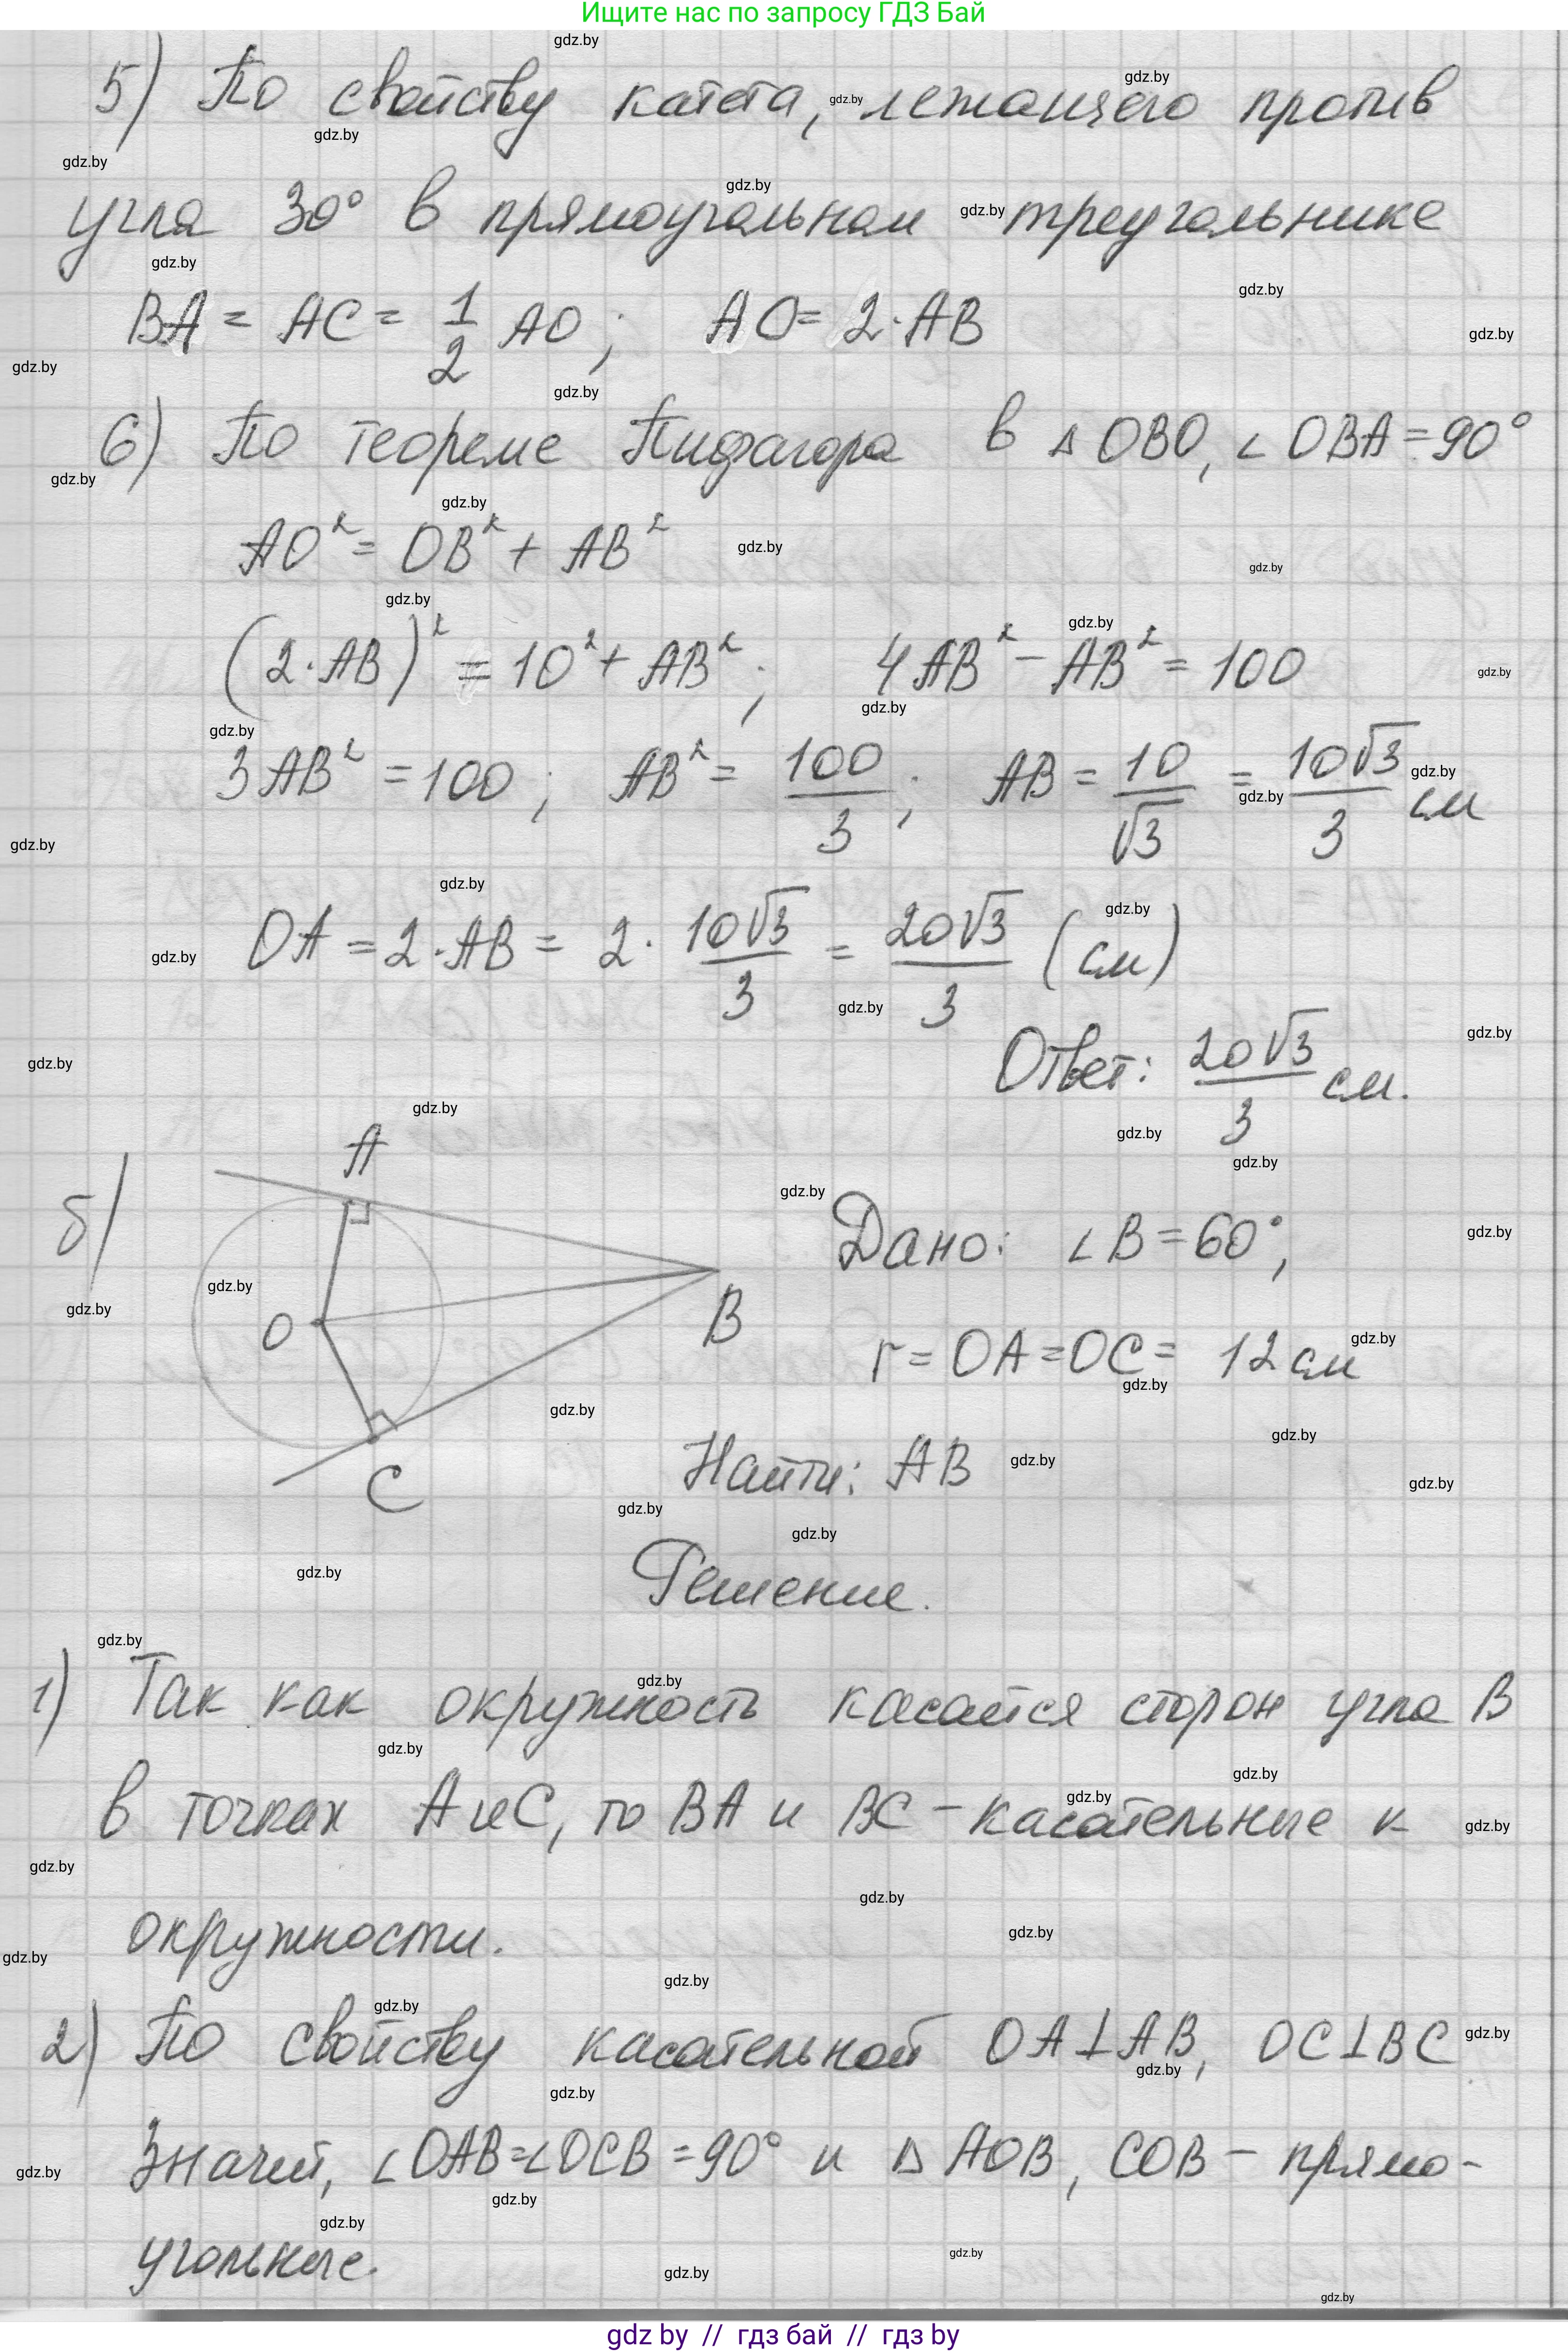 Ищите нас по запросу ГДЗ Бай
5) По свойству катета, лежащего против
угла 30° в прямоугольном треугольнике
BA = AC = 1/2 AO; AO = 2·AB
6) По теореме Пифагора в △OBO, ∠OBA = 90°
AO² = OB² + AB²
(2·AB)² = 10² + AB²; 4AB² - AB² = 100
3AB² = 100; AB² = 100/3; AB = 10/√3 = 10√3/3 см
OA = 2·AB = 2· 10√3/3 = 20√3/3 (см)
Ответ: 20√3/3 см.
б)
A
O
B
C
Дано: ∠B = 60°,
r = OA = OC = 12 см
Найти: AB
Решение.
1) Так как окружность касается сторон угла B
в точках A и C, то BA и BC – касательные к
окружности.
2) По свойству касательной OA⊥AB, OC⊥BC
Значит, ∠OAB=∠OCB = 90° и △ AOB, COB – прямо-
угольные.
gdz by // гдз бай // гдз by